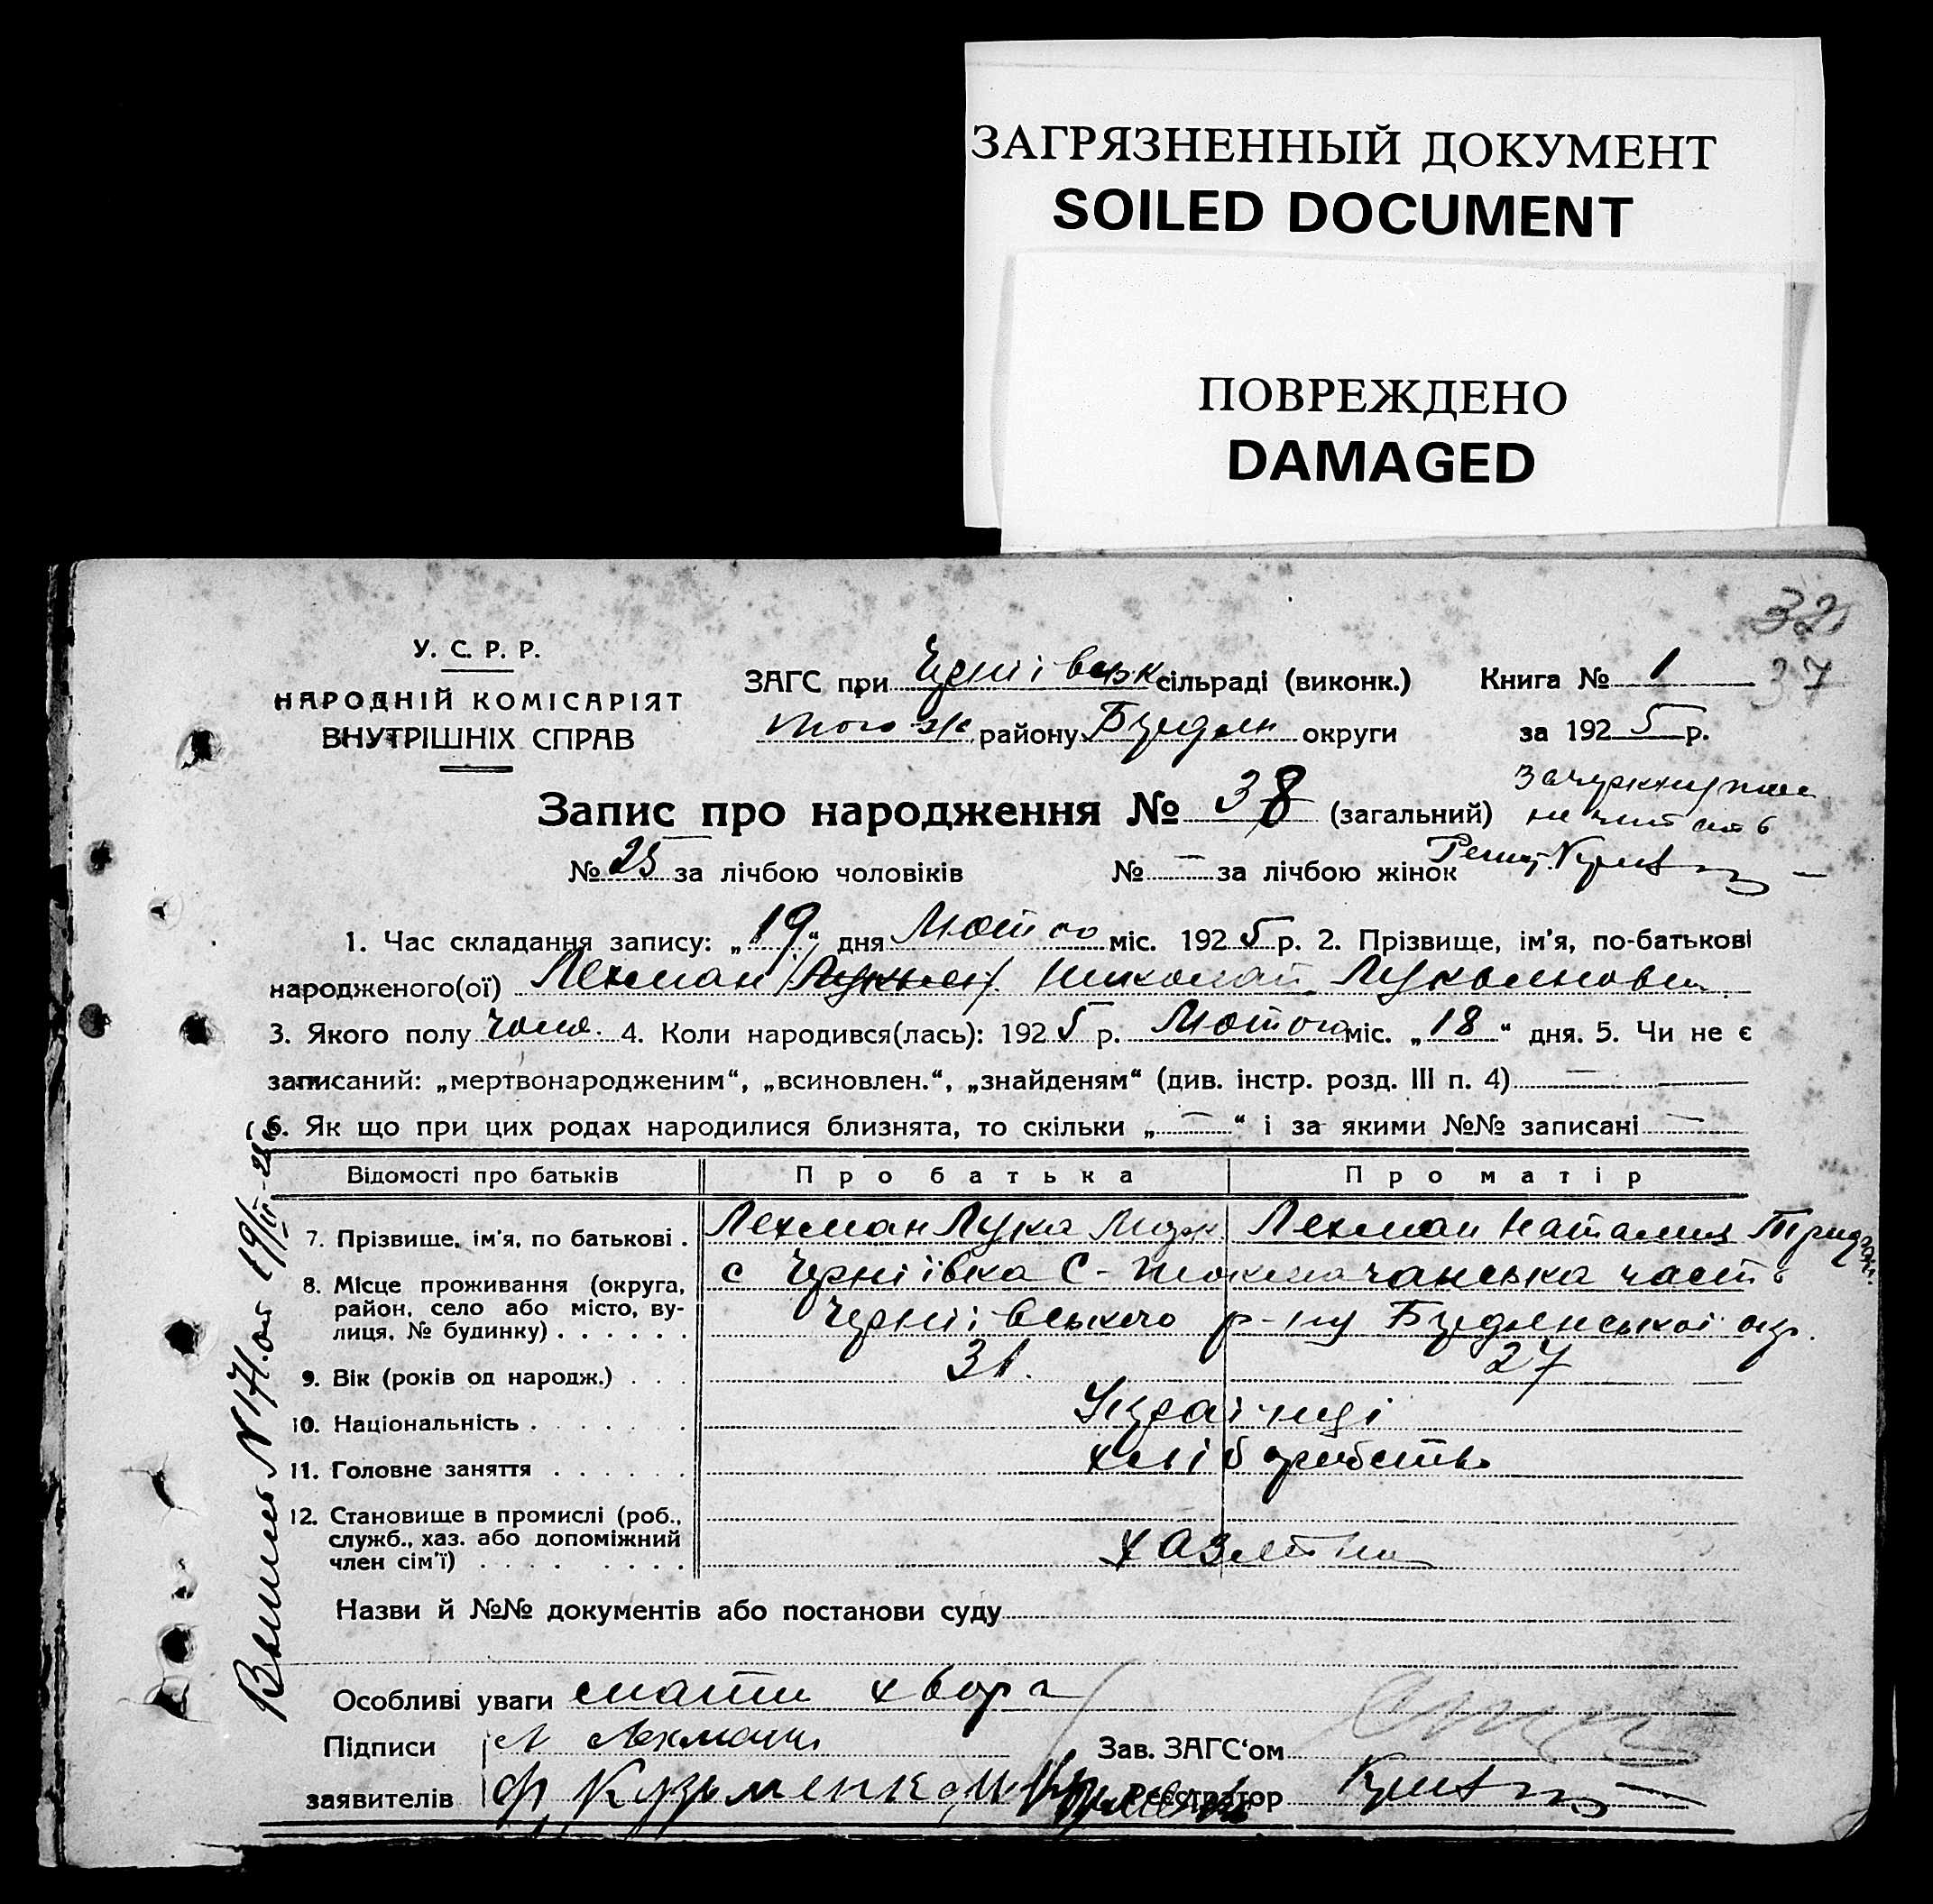 ЗАГРЯЗНЕННЫЙ ДОКУМЕНТ
SOILED DOCUMENT
ПОВРЕЖДЕНО
DAMAGED
32
37
У. С. Р. Р.
НАРОДНІЙ КОМІСАРІЯТ
ВНУТРІШНІХ СПРАВ
ЗАГС при Черніівськ сільраді (виконк.)
того ж району Бердян округи
Книга № 1
за 1925 р.
Запис про народження № 38 (загальний)
не читать
№ 25 за лічбою чоловіків № — за лічбою жінок
1. Час складання запису: „19“ дня Лютого міс. 1925 р. 2. Прізвище, ім'я, по-батькові
народженого(ої) Лехман Николай Лукьянович
3. Якого полу чолов. 4. Коли народився(лась): 1925 р. Лютого міс. „18“ дня. 5. Чи не є
записаний: „мертвонародженим“, „всиновлен.“, „знайденям“ (див. інстр. розд. III п. 4) —
6. Як що при цих родах народилися близнята, то скільки „—“ і за якими №№ записані —
Відомості про батьків Про батька Про матір
7. Прізвище, ім'я, по батькові . Лехман Лука Лехман Наталия
8. Місце проживання (округа, район, село або місто, вулиця, № будинку) . . . . . .
с Черніївка С-Токмачанська часть
Черніівського р-ну Бердянської окр.
9. Вік (років од народж.) . . . 31. 27
10. Національність . . . . . . Українці
11. Головне заняття . . . . . . хліборобство
12. Становище в промислі (роб.,
служб., хаз. або допоміжний
член сім'ї) . . . . . . . . хазяіни
Назви й №№ документів або постанови суду
Особливі уваги мати хвора
Підписи Л Лехман
Зав. ЗАГС'ом
заявителів Ф Кузьменко
Реєстратор